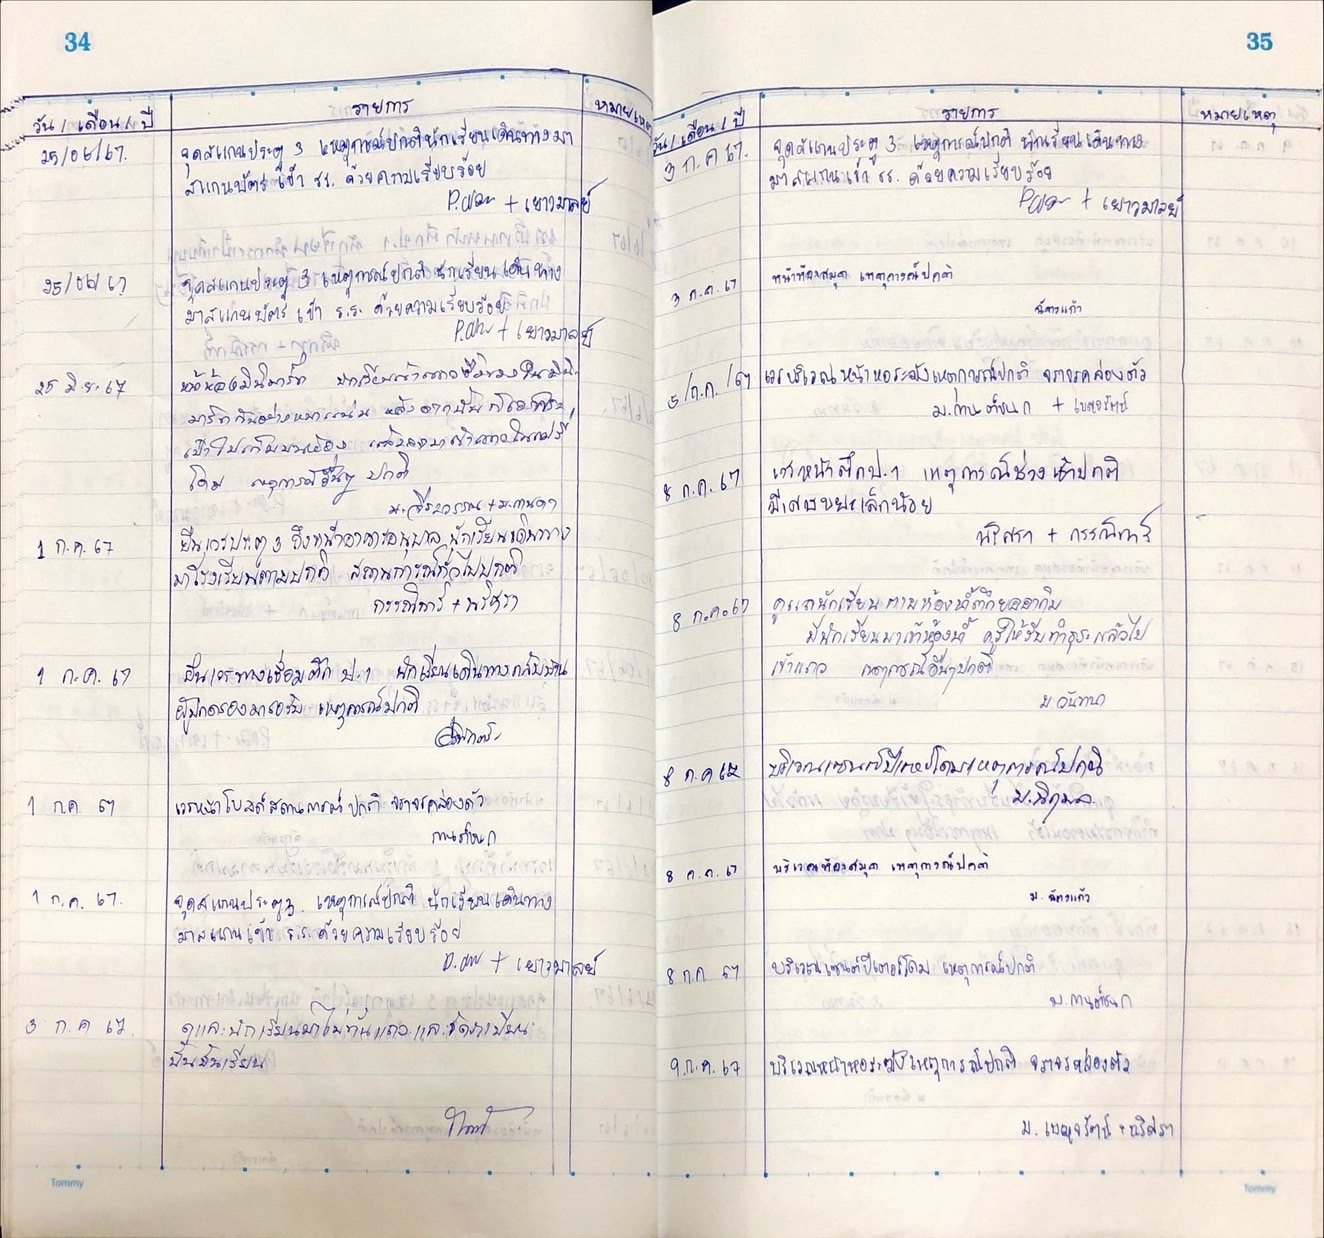 34
วัน / เดือน / ปี รายการ หมายเหตุ
25/06/67. จุดสแกนประตู 3 เหตุการณ์ปกตินักเรียนเดินทางมา
สแกนบัตร เข้า รร. ด้วยความเรียบร้อย
+ เยาวมาลย์
25/06/67 จุดสแกนประตู 3 เหตุการณ์ปกติ นักเรียนเดินทาง
มาสแกนบัตร เข้า ร.ร. ด้วยความเรียบร้อย
+ เยาวมาลย์
25 มิ.ย. 67 หน้าห้องมินิมาร์ท
โดม เหตุการณ์อื่นๆ ปกติ
1 ก.ค. 67 ยืนเวรประตู 3 ถึงหน้าอาคารอนุบาล นักเรียนเดินทาง
มาโรงเรียนตามปกติ สถานการณ์ทั่วไปปกติ
กรรณิการ์ + นริศรา
1 ก.ค. 67 ยืนเวรทางเชื่อมตึก ป.1 นักเรียนเดินทางกลับบ้าน
ผู้ปกครองมารอรับ เหตุการณ์ปกติ
1 กค 67 เวรหน้าโบสถ์สถานการณ์ ปกติ จราจรคล่องตัว
กานต์ชนก
1 ก.ค. 67. จุดสแกนประตู 3 เหตุการณ์ปกติ นักเรียนเดินทาง
มาสแกนเข้า ร.ร. ด้วยความเรียบร้อย
+ เยาวมาลย์
3 ก.ค 67. ดูแลนักเรียนมาไม่ทันแถว และ
ขึ้นชั้นเรียน
Tommy
35
วัน / เดือน / ปี รายการ หมายเหตุ
3 ก.ค 67. จุดสแกนประตู 3 เหตุการณ์ปกติ นักเรียนเดินทาง
มาสแกนเข้า รร. ด้วยความเรียบร้อย
+ เยาวมาลย์
3 ก.ค. 67 หน้าห้องสมุด เหตุการณ์ปกติ
ฉัตรแก้ว
5/ก.ค./67 เวรบริเวณหน้าหอระฆังเหตุการณ์ปกติ จราจรคล่องตัว
ม.กานต์ชนก + เบญจรัตน์
8 ก.ค. 67 เวรหน้าตึก ป.1 เหตุการณ์ช่วงเช้าปกติ
มีเศษขยะเล็กน้อย
นริศรา + กรรณิการ์
8 ก.ค. 67 ดูแลนักเรียนตามห้องน้ำตึกยออากิม
มีนักเรียนมาเข้าห้องน้ำ ครูให้รีบทำธุระแล้วไป
เข้าแถว เหตุการณ์อื่นๆปกติ
ม.วันทนา
8 ก.ค 67 บริเวณเซนต์ปีเตอร์โดม เหตุการณ์ปกติ
ม.นฤมล
8 ก.ค. 67 บริเวณห้องสมุด เหตุการณ์ปกติ
ม. ฉัตรแก้ว
8 ก.ค 67 บริเวณเซนต์ปีเตอร์โดม เหตุการณ์ปกติ
ม.กานต์ชนก
9 ก.ค. 67 บริเวณหน้าหอระฆัง เหตุการณ์ปกติ จราจรคล่องตัว
ม. เบญจรัตน์ + นริศรา
Tommy